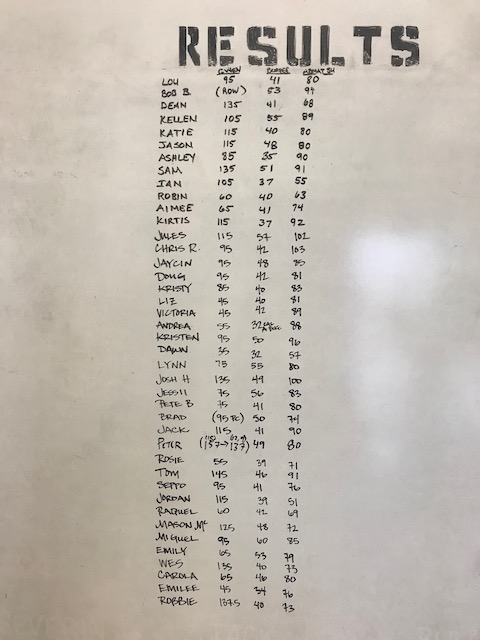 RESULTS
BURPEE ABMAT SU
LOU 95 41 80
BOB B. (ROW) 53 94
DEAN 135 41 68
KELLEN 105 55 89
KATIE 115 40 80
JASON 115 48 80
ASHLEY 85 35 90
SAM 135 51 91
IAN 105 37 55
ROBIN 60 40 63
AIMEE 65 41 74
KIRTIS 115 37 92
JULES 115 57 102
CHRIS R. 95 42 103
JAYCIN 95 48 85
DOUG 95 42 81
KRISTY 85 40 83
LIZ 45 40 81
VICTORIA 45 42 89
ANDREA 55 32 88
KRISTEN 95 50 96
DAWN 35 32 57
LYNN 75 55 80
JOSH H 135 49 100
JESSII 75 56 83
PETE B 75 41 80
BRAD (95 PC) 50 74
JACK 115 41 90
PETER (137→137) 49 80
ROSIE 55 39 71
TOM 145 46 91
SEPPO 95 41 76
JORDAN 115 39 51
RAQUEL 60 42 69
MASON Mc 125 48 72
MIGUEL 95 60 85
EMILY 65 53 79
WES 135 40 73
CAROLA 65 46 80
EMILEE 45 34 76
ROBBIE 137.5 40 73